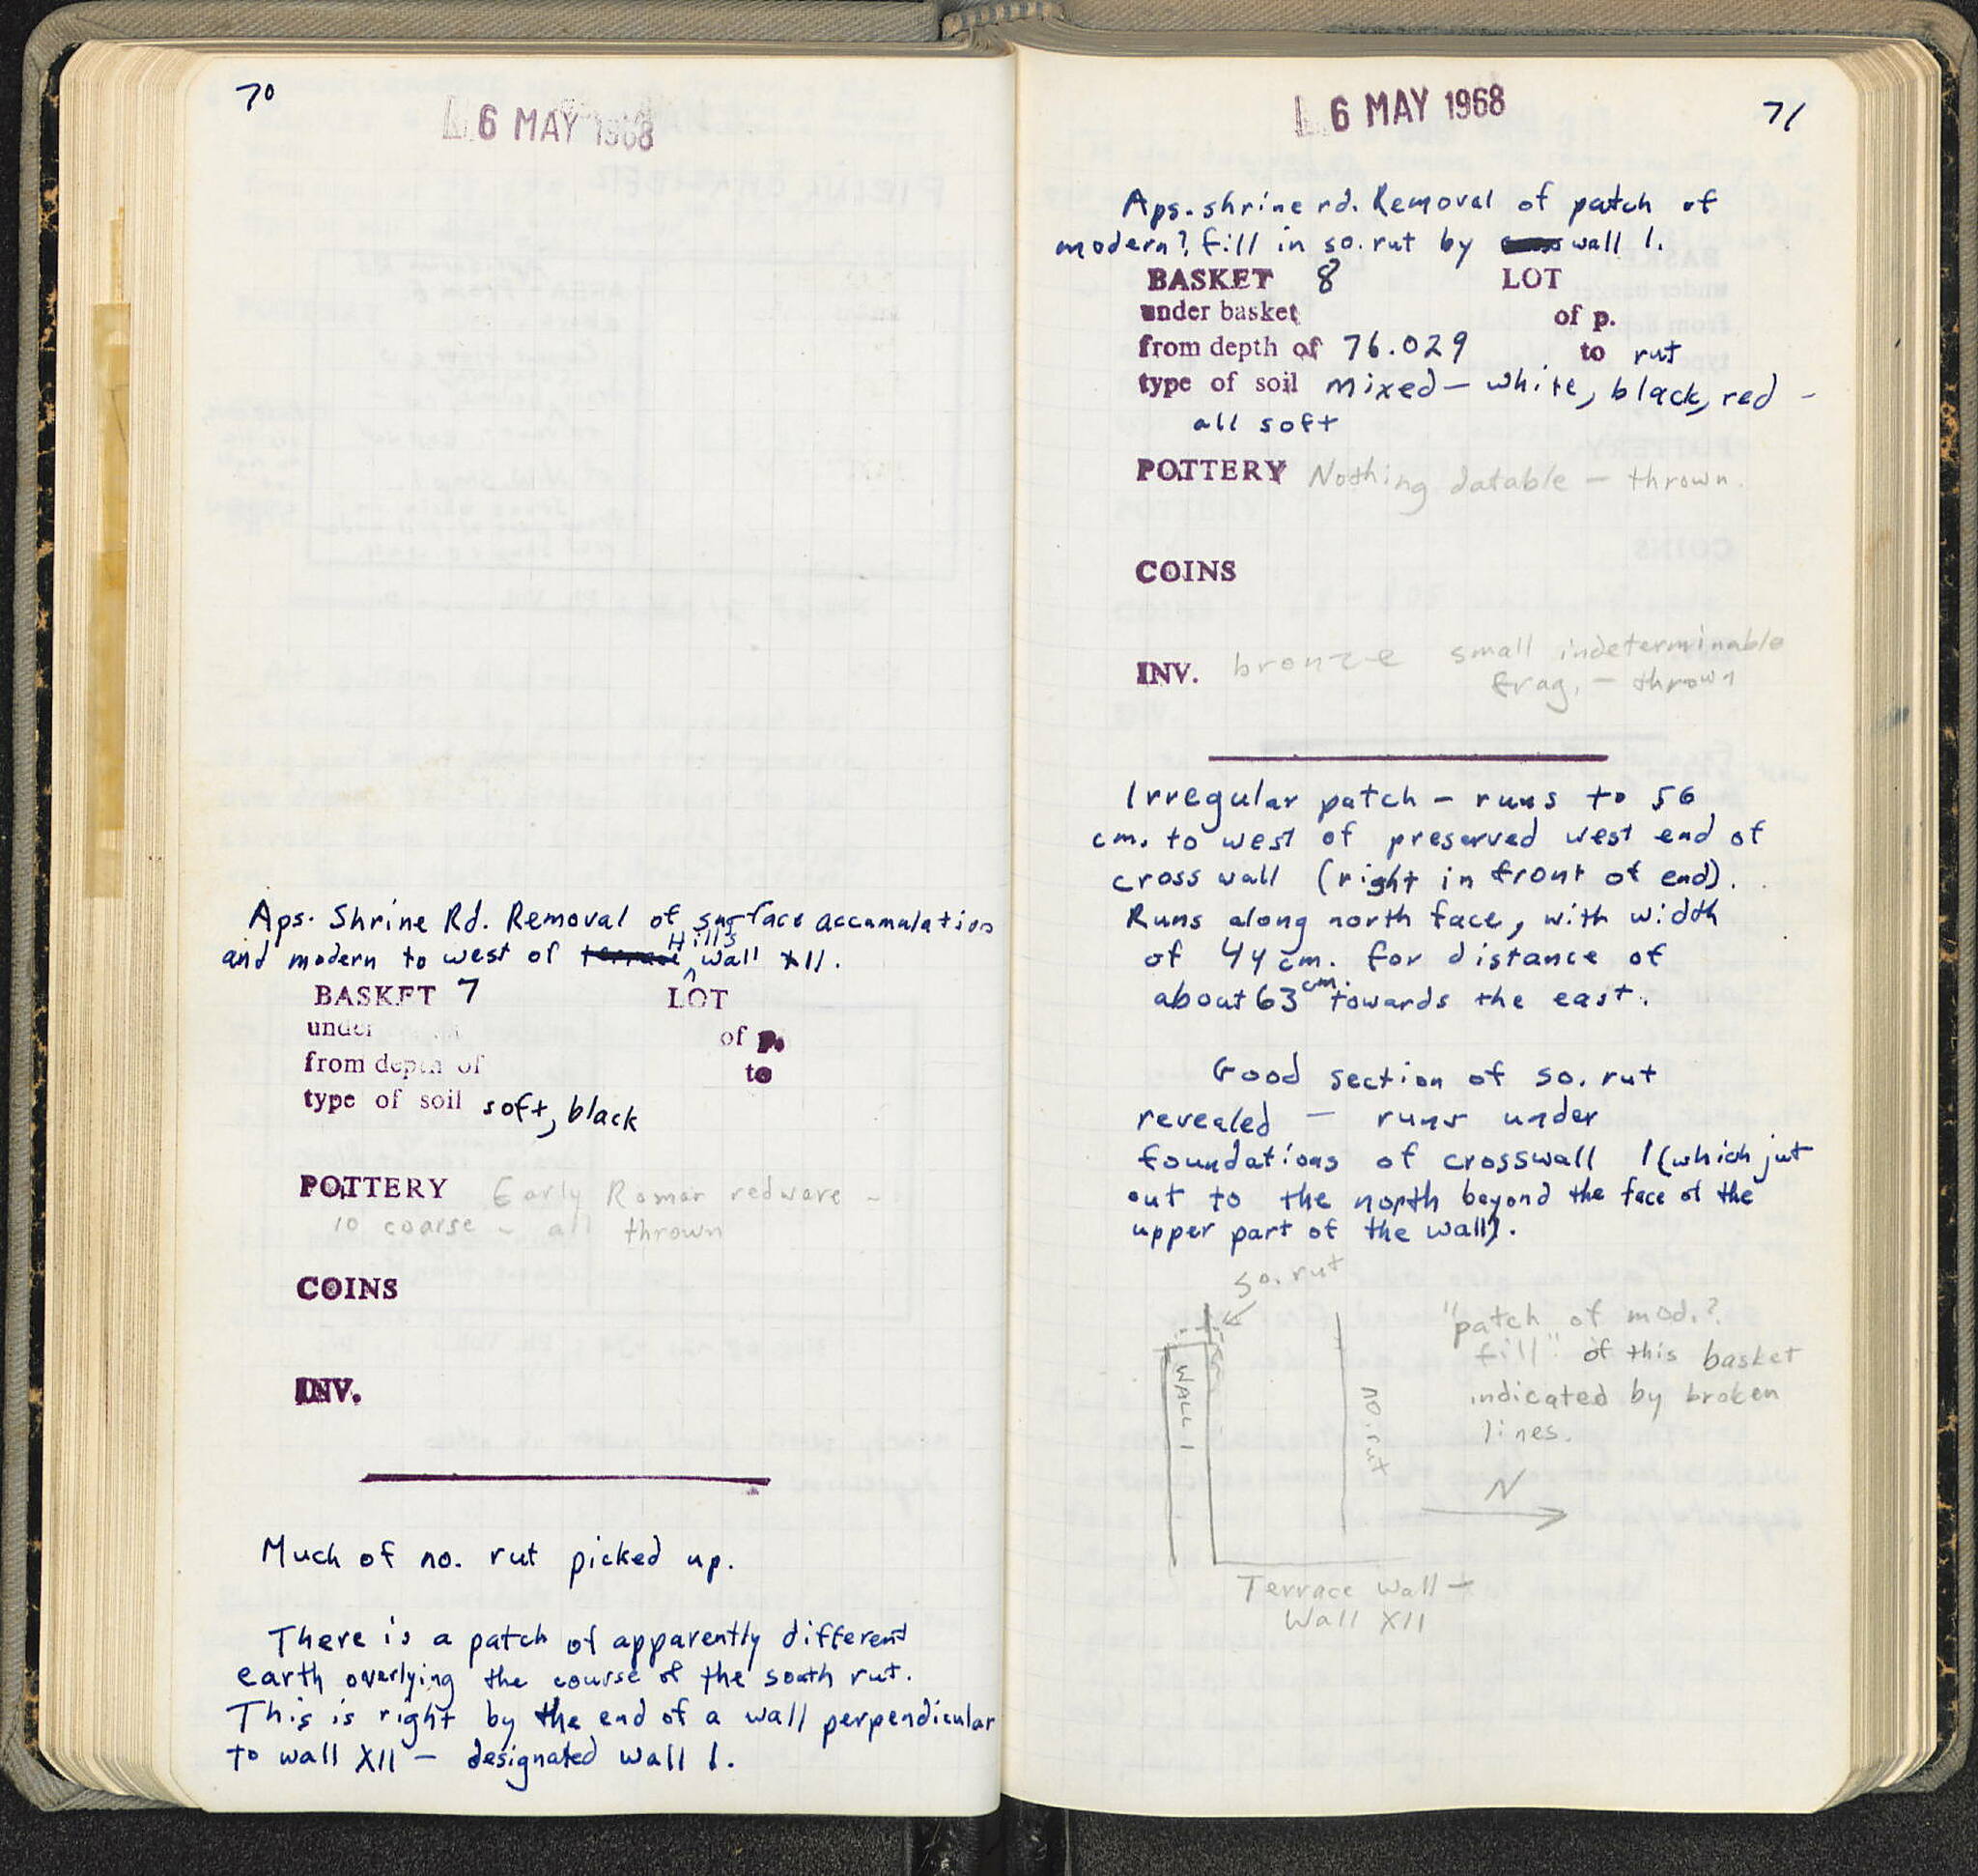 70
6 MAY 1968
Aps. Shrine Rd. Removal of surface accumulation
and modern to west of Hill's wall XII.
BASKET 7 LOT
under of p.
from depth of to
type of soil soft, black
POTTERY Early Roman redware -
10 coarse - all thrown
COINS
INV.
Much of no. rut picked up.
There is a patch of apparently different
earth overlying the course of the south rut.
This is right by the end of a wall perpendicular
to wall XII - designated wall 1.
6 MAY 1968
71
Aps. shrine rd. Removal of patch of
modern? fill in so. rut by wall 1.
BASKET 8 LOT
under basket of p.
from depth of 76.029 to rut
type of soil mixed - white, black, red -
all soft
POTTERY Nothing datable - thrown.
COINS
INV. bronze small indeterminable
frag. - thrown
Irregular patch - runs to 56
cm. to west of preserved west end of
cross wall (right in front of end).
Runs along north face, with width
of 44 cm. for distance of
about 63 cm. towards the east.
Good section of so. rut
revealed - runs under
foundations of crosswall 1 (which jut
out to the north beyond the face of the
upper part of the wall).
so. rut
WALL 1
no. rut
"patch of mod.?
fill" of this basket
indicated by broken
lines.
N
Terrace Wall -
Wall XII